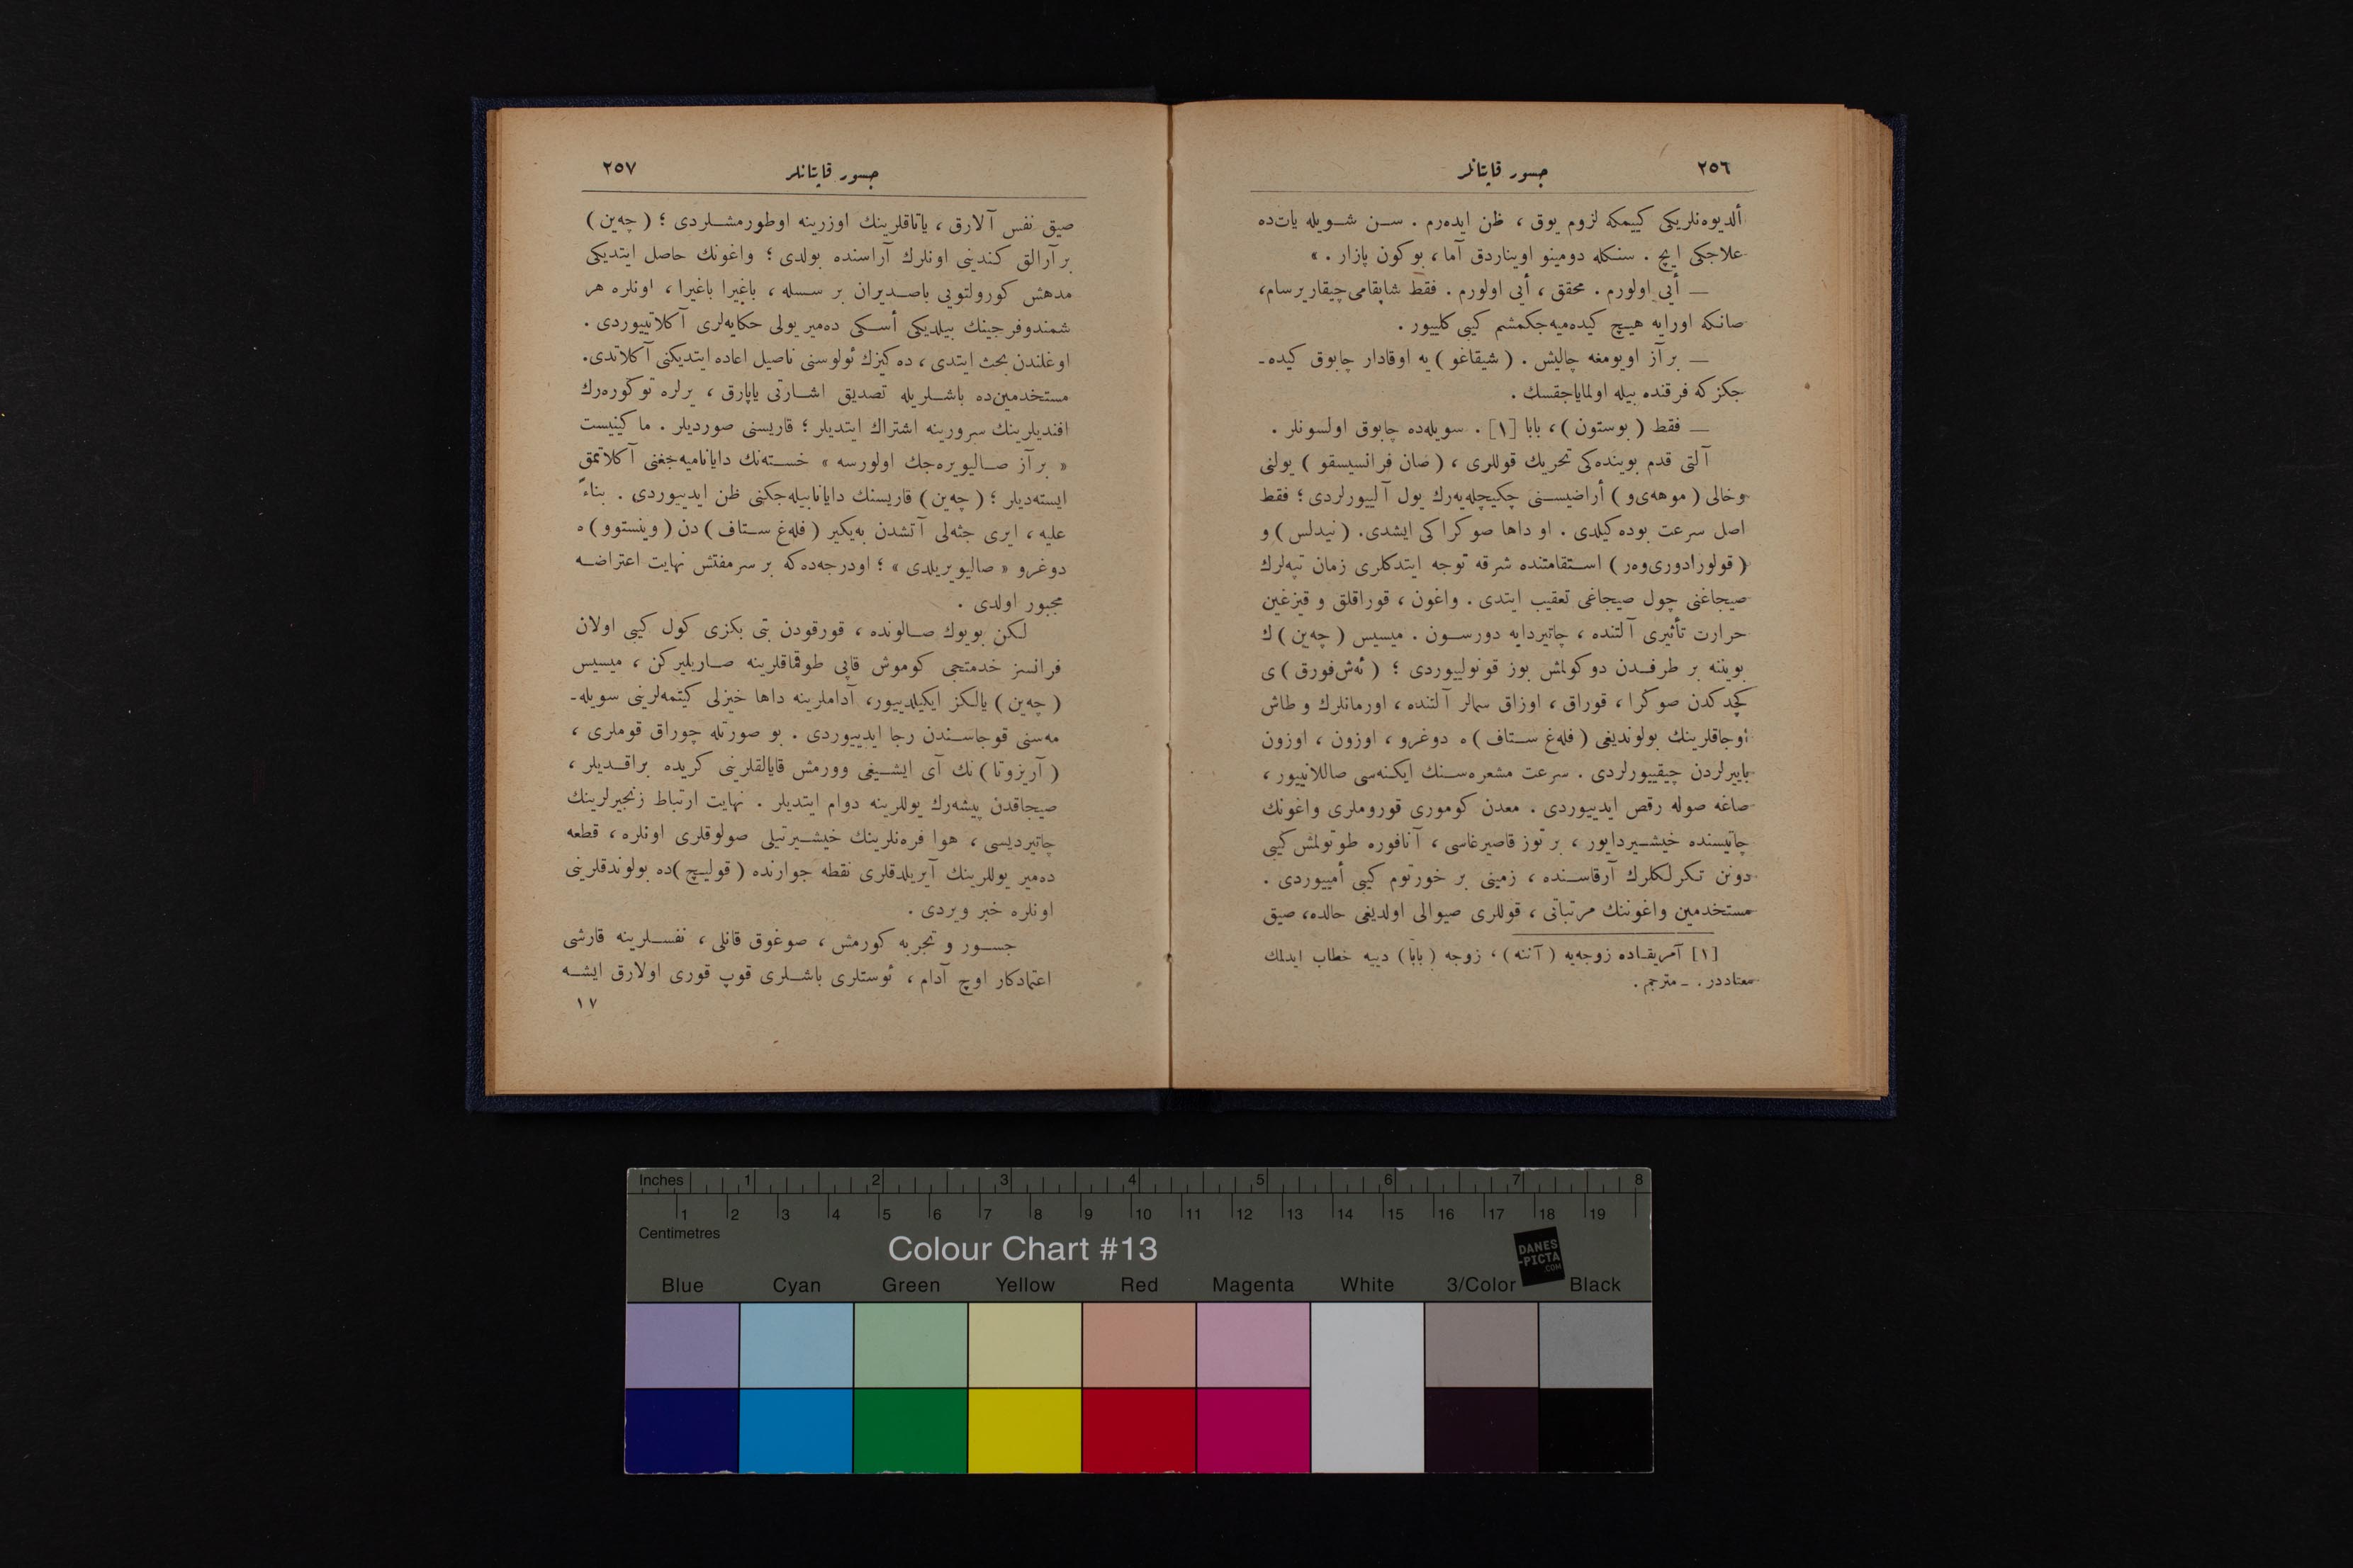 ٢٥٦
جسور قاپتانلر
ألديوه‌نلریکی کییمکه لزوم یوق ، ظن ایده‌رم . سن شویله یات‌ده
علاجکی ایچ . سنکله دومینو اوینارد‌ق آما ، بوکون پازار . »
— أیی اولورم . محقق ، أیی اولورم . فقط شاپقامی چیقاریرسام،
صانکه اورایه هیچ کیده‌میه‌جکمشم کیبی کلییور .
— بر آز اویومغه چالیش . ( شیقاغو ) یه اوقادار چابوق کیده‌ـ
جکزکه فرقنده بیله اولمایاجقسك .
— فقط ( بوستون ) ، بابا [١] . سویله‌ده چابوق اولسونلر .
آلتی قدم بوینده‌کی تحریك قوللری ، ( صان فرانسیسقو ) یولنی
وخالی ( موهه‌ی‌و ) أراضیسنی چکیچله‌یه‌رك یول آلییورلردی ؛ فقط
اصل سرعت بوده‌کیلدی . او داها صوکراکی ایشدی. ( نیدلس ) و
( قولورادوری‌وه‌ر ) استقامتنده شرقه توجه ایتدکلری زمان تپه‌لرك
صیجاغنی چول صیجاغی تعقیب ایتدی . واغون ، قوراقلق و قیزغین
حرارت تأثیری آلتنده ، چاتیردایه دورسون . میسیس ( چه‌ین ) ك
بویننه بر طرفدن دوکولمش بوز قونولییوردی ؛ ( ئه‌ش‌فورق ) ی
کچدکدن صوکرا ، قوراق ، اوزاق سمالر آلتنده ، اورمانلرك و طاش
أوجاقلرینك بولوندیغی ( فله‌غ ستاف ) ه دوغرو ، اوزون ، اوزون
باییرلردن چیقییورلردی . سرعت مشعره‌سنك ایکنه‌سی صاللانییور ،
صاغه صوله رقص ایدییوردی . معدن کوموری قوروملری واغونك
چاتیسنده خیشیردایور ، بر توز قاصیرغاسی ، آنافوره طوتولمش کیبی
دونن تکرلکلرك آرقاسنده ، زمینی بر خورتوم کیبی أمییوردی .
مستخدمین واغوننك مرتباتی ، قوللری صیوالی اولدیغی حالده، صیق
[١] آمریقاده زوجه‌یه ( آننه ) ، زوجه ( بابا ) دییه خطاب ایدلمك
معتاددر . ـ مترجم .
٢٥٧
جسور قاپتانلر
صیق نفس آلارق ، یاتاقلرینك اوزرینه اوطورمشلردی ؛ ( چه‌ین )
بر آرالق کندینی اونلرك آراسنده بولدی ؛ واغونك حاصل ایتدیکی
مدهش کورولتویی باصدیران بر سسله ، باغیرا باغیرا ، اونلره هر
شمندوفرجینك بیلدیکی أسکی ده‌میر یولی حکایه‌لری آکلاتییوردی .
اوغلندن بحث ایتدی ، ده‌کیزك ئولوسنی ناصیل اعاده ایتدیکنی آکلاتدی.
مستخدمین‌ده باشلریله تصدیق اشارتی یاپارق ، یرلره توکوره‌رك
افندیلرینك سرورینه اشتراك ایتدیلر ؛ قاریسنی صوردیلر . ماکینیست
« بر آز صالیویره‌جك اولورسه » خسته‌نك دایانامیه‌جغنی آکلاتمق
ایسته‌دیلر ؛ ( چه‌ین ) قاریسنك دایانابیله‌جکنی ظن ایدییوردی . بناءً
علیه ، ایری جثه‌لی آتشدن به‌یکیر ( فله‌غ ستاف ) دن ( وینستوو ) ه
دوغرو « صالیویریلدی » ؛ اودرجه‌ده‌که بر سرمفتش نهایت اعتراضه
مجبور اولدی .
لکن بویوك صالونده ، قورقودن بتی بکزی کول کیبی اولان
فرانسز خدمتجی کوموش قاپی طوقماقلرینه صاریلیرکن ، میسیس
( چه‌ین ) یالکز ایکیلدییور، آداملرینه داها خیزلی کیتمه‌لرینی سویله‌ـ
مه‌سنی قوجاسندن رجا ایدییوردی . بو صورتله چوراق قوملری ،
( آریزوتا ) نك آی ایشیغی وورمش قایالقلرینی کریده براقدیلر ،
صیجاقدن پیشه‌رك یوللرینه دوام ایتدیلر . نهایت ارتباط زنجیرلرینك
چاتیردیسی ، هوا فره‌نلرینك خیشیرتیلی صولوقلری اونلره ، قطعه
ده‌میر یوللرینك آیریلدقلری نقطه جوارنده ( قولیچ )ده بولوندقلرینی
اونلره خبر ویردی .
جسور و تجربه کورمش ، صوغوق قانلی ، نفسلرینه قارشی
اعتمادکار اوچ آدام ، ئوستلری باشلری قوپ قوری اولارق ایشه
١٧
Inches 1 2 3 4 5 6 7 8
1 2 3 4 5 6 7 8 9 10 11 12 13 14 15 16 17 18 19
Centimetres
Colour Chart #13
DANES
-PICTA
.COM
Blue Cyan Green Yellow Red Magenta White 3/Color Black